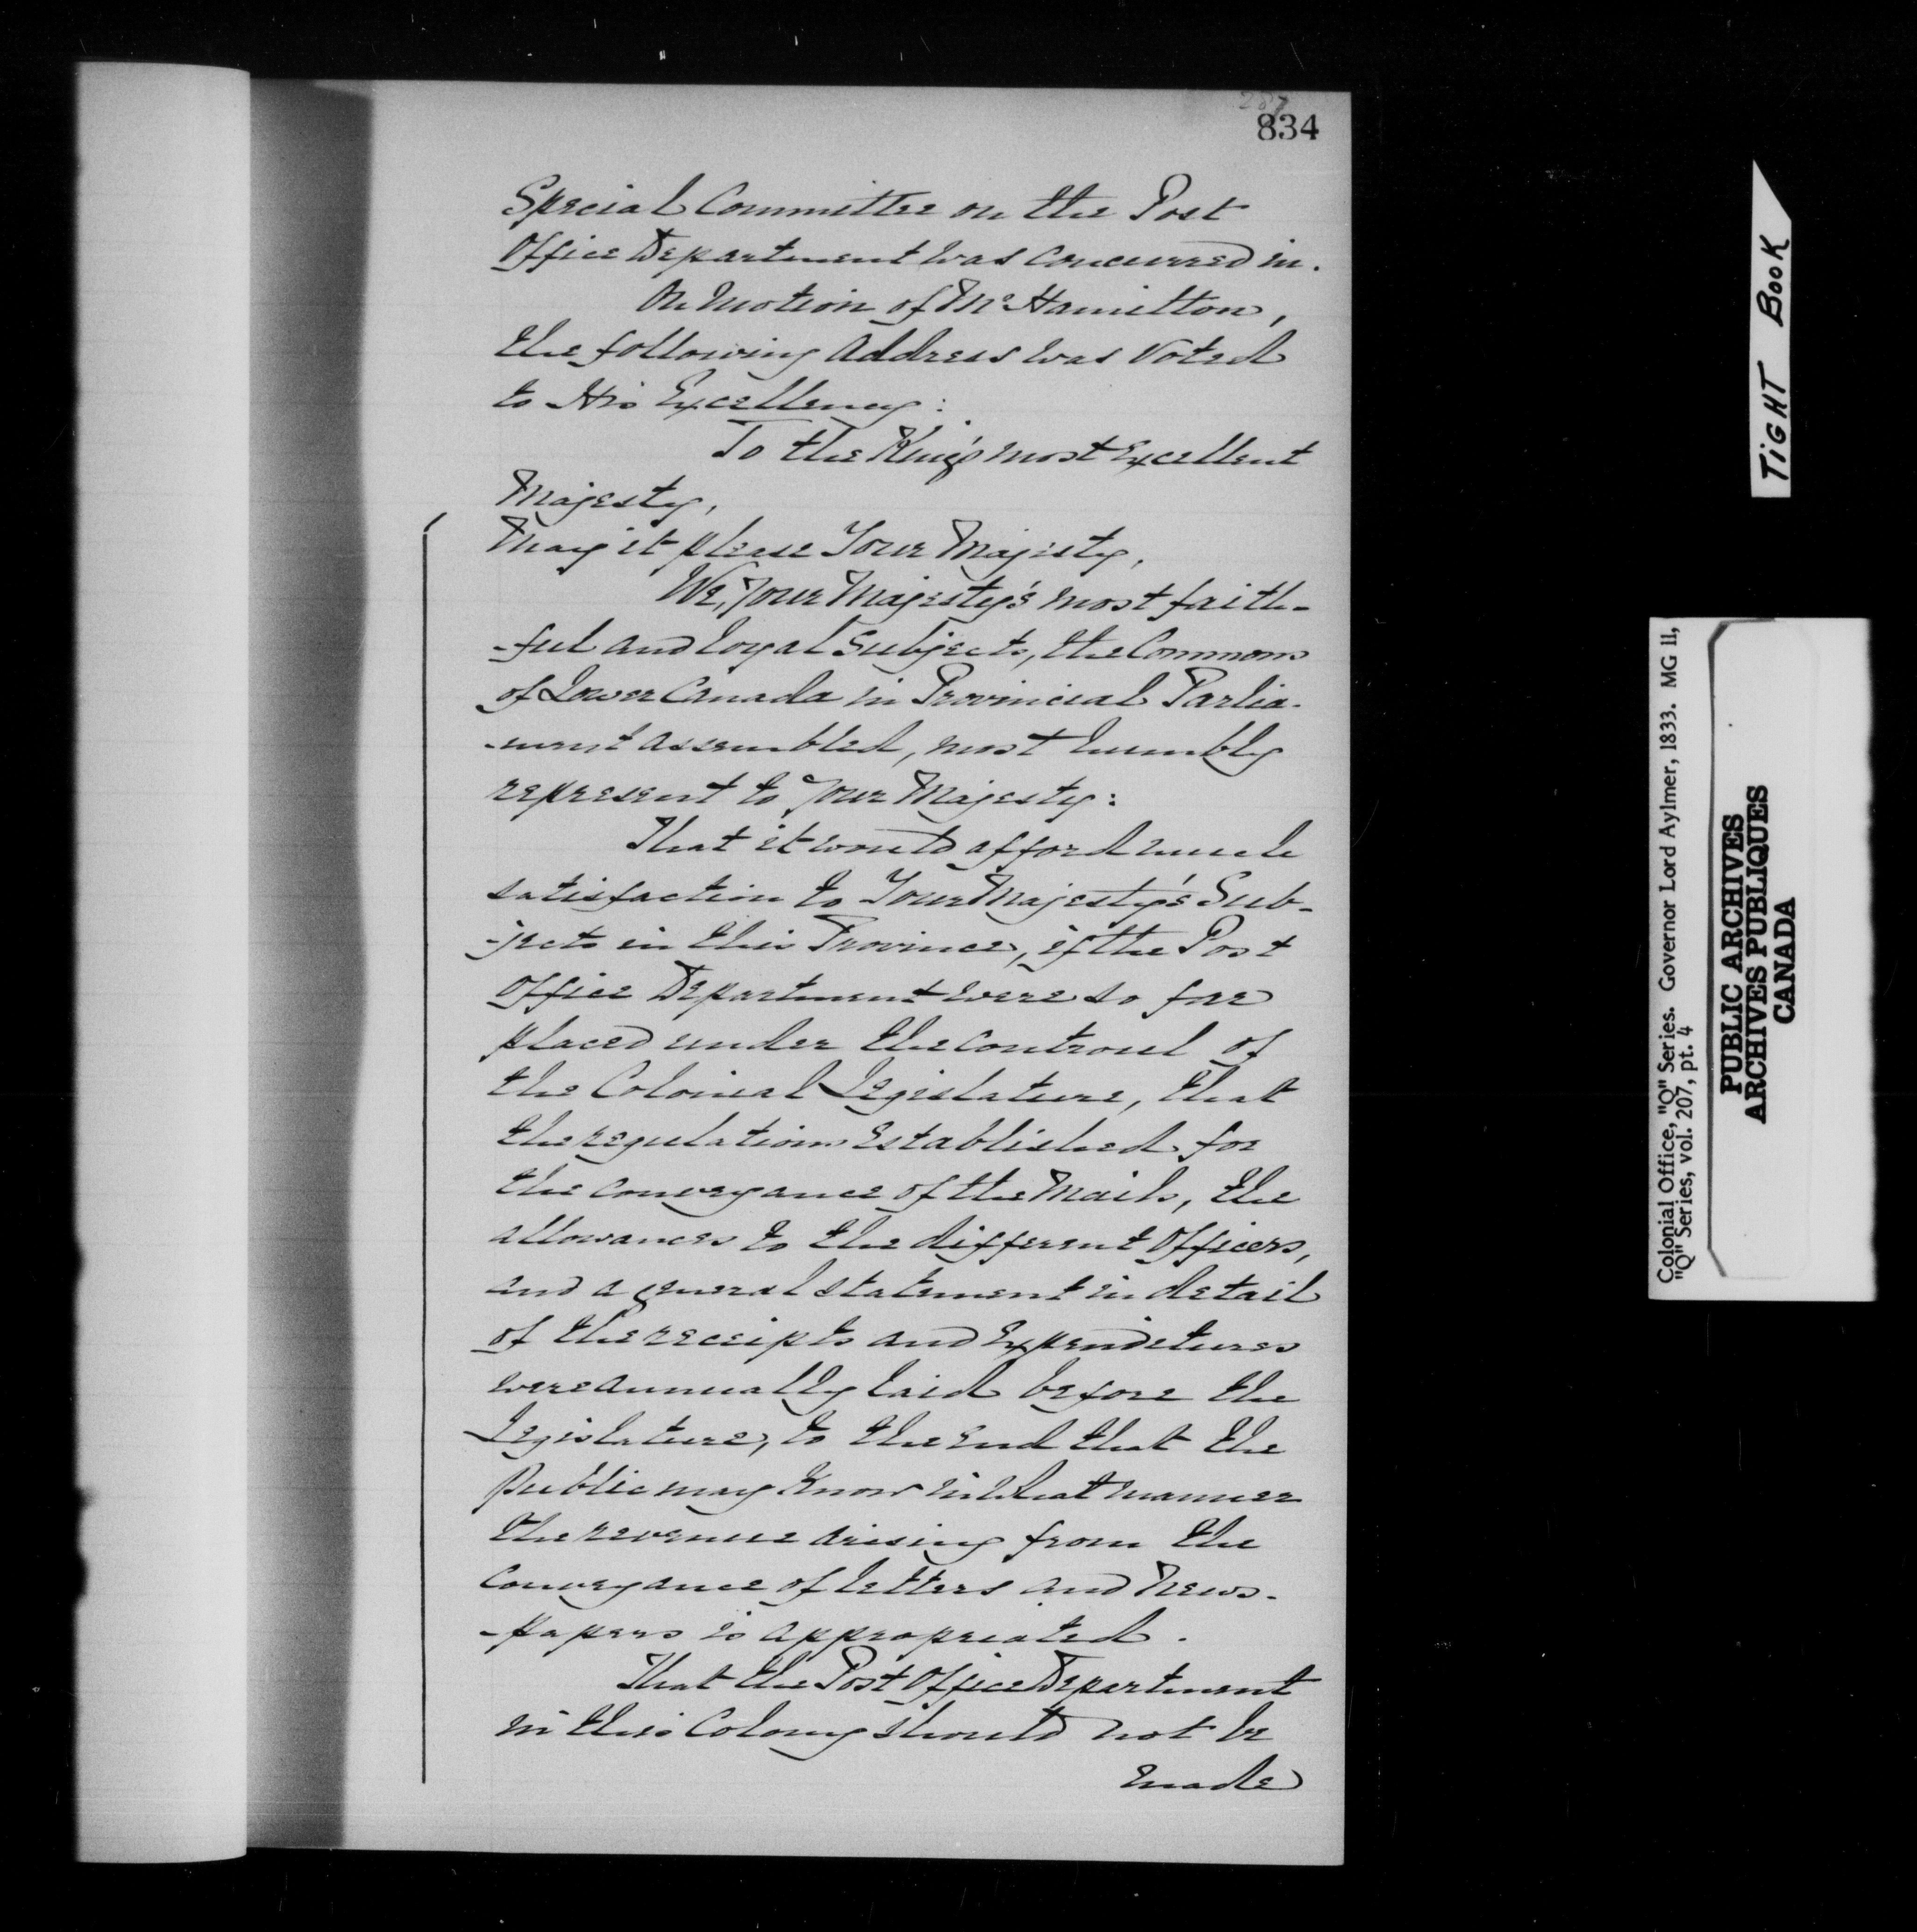 287
834
Special Committee on the Post
Office Department was concurred in.
On motion of Mr. Hamilton,
the following Address was voted
to His Excellency:
To the King's most Excellent
Majesty,
May it please Your Majesty,
We, Your Majesty's most faith-
-ful and loyal subjects, the Commons
of Lower Canada in Provincial Parlia-
-ment assembled, most humbly
represent to Your Majesty:
That it would afford much
satisfaction to Your Majesty's Sub-
-jects in this Province, if the Post
Office Department were so far
placed under the controul of
the Colonial Legislature, that
the regulations established for
the conveyance of the Mails, the
allowances to the different Officers,
and a general statement in detail
of the receipts and Expenditures
were annually laid before the
Legislature, to the end that the
Public may know in what manner
the revenue arising from the
Conveyance of letters and News-
-papers is appropriated.
That the Post Office Department
in this Colony should not be
made
TIGHT BOOK
Colonial Office, "Q" Series. Governor Lord Aylmer, 1833. MG 11,
"Q" Series, vol. 207, pt. 4
PUBLIC ARCHIVES
ARCHIVES PUBLIQUES
CANADA